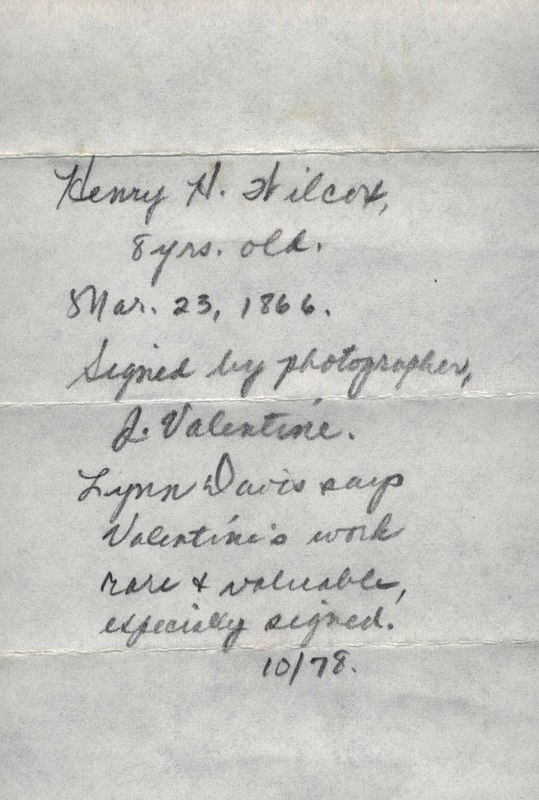 Henry H. Wilcox,
8 yrs. old.
Mar. 23, 1866.
Signed by photographer,
J. Valentine.
Lynn Davis says
Valentine's work
rare & valuable,
especially signed.
10/78.